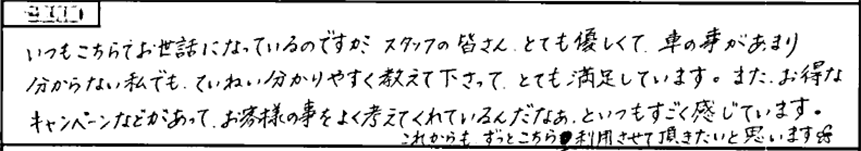 いつもこちらでお世話になっているのですが、スタッフの皆さん、とても優しくて、車の事があまり
分からない私でも、ていねい分かりやすく教えて下さって、とても満足しています。また、お得な
キャンペーンなどがあって、お客様の事をよく考えてくれているんだなぁ、といつもすごく感じています。
これからも、ずっとこちら利用させて頂きたいと思います